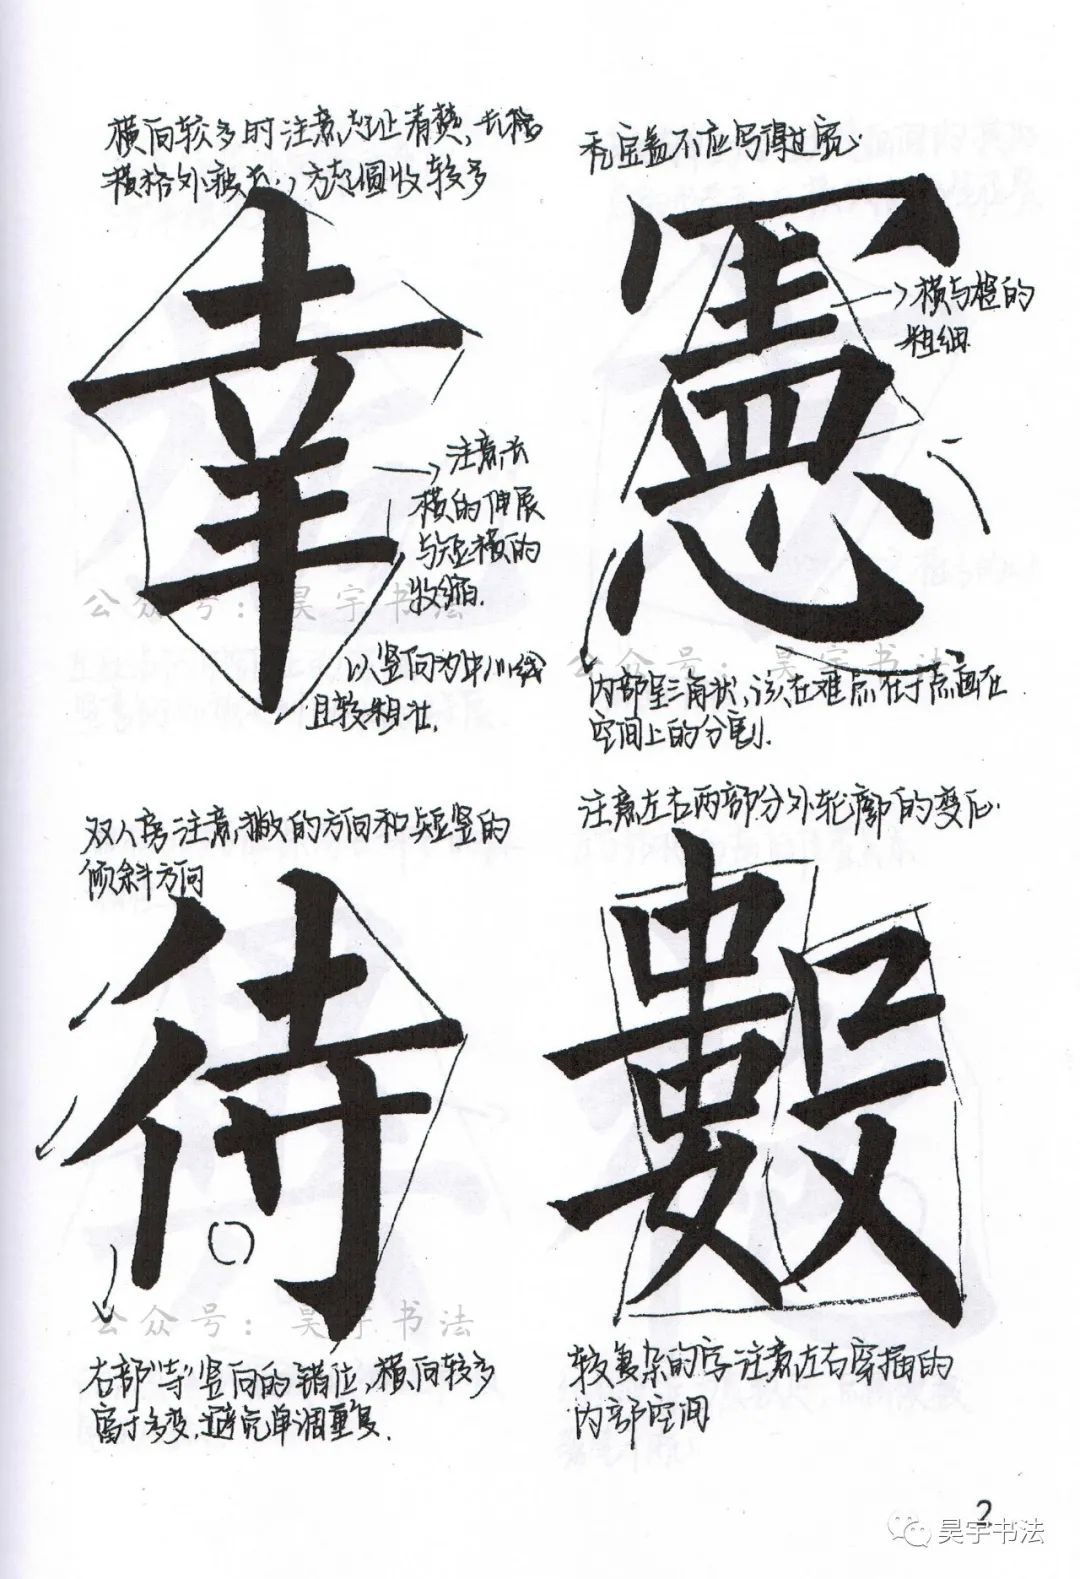 横向较多时注意起止清楚,长短
横格外 方起圆收较多
幸
注意长
横的伸展
与短横的
收缩.
以竖向为中心线
且较粗壮.
秃宝盖不应写得过宽.
憲
横与横的
粗细
内部呈三角状,该在难点在于点画在
空间上的分割.
双人旁注意,撇的方向和短竖的
倾斜方向
待
右部“寺”竖向的错位,横向较多
富于多变,避免单调重复.
注意左右两部分外轮廓的变化.
數
较复杂的字注意左右穿插的
内部空间
公众号:昊宇书法
公众号:昊宇书法
公众号:昊宇书法
2
昊宇书法